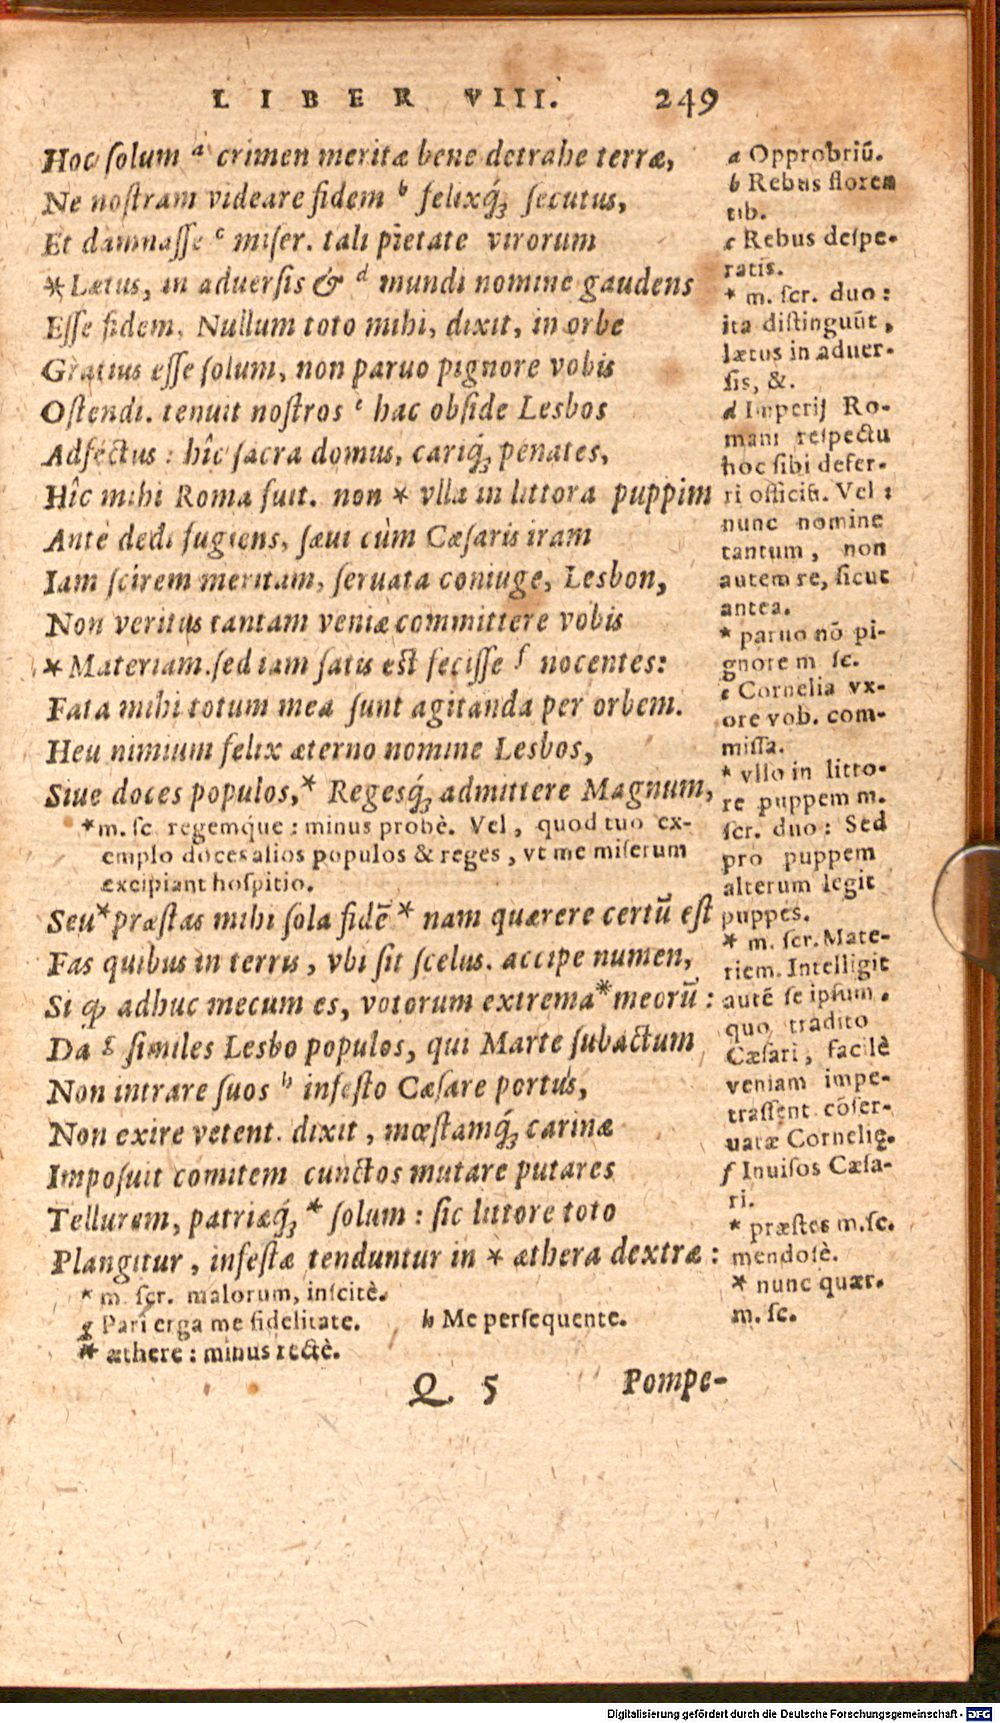 LIBER VIII. 249
Hoc ſolum a crimen meritæ bene detrahe terræ,
Ne noſtram videare fidem b felixq́ꝫ ſecutus,
Et damnaſſe c miſer. tali pietate virorum
* Lætus, in aduerſis & d mundi nomine gaudens
Eſſe fidem, Nullum toto mihi, dixit, in orbe
Gratius eſſe ſolum, non paruo pignore vobis
Oſtendi. tenuit noſtros e hac obſide Lesbos
Adfectus: hîc ſacra domus, cariq́ꝫ penates,
Hîc mihi Roma fuit. non * vlla in littora puppim
Antè dedi fugiens, ſæui cùm Cæſaris iram
Iam ſcirem meritam, ſeruata coniuge, Lesbon,
Non veritus tantam veniæ committere vobis
* Materiam. ſed iam ſatis eſt feciſſe f nocentes:
Fata mihi totum mea ſunt agitanda per orbem.
Heu nimium felix æterno nomine Lesbos,
Siue doces populos, * Regesq́ꝫ admittere Magnum,
* m. ſc regemq́ue: minus probè. Vel, quod tuo ex-
emplo doces alios populos & reges, vt me miſerum
excipiant hoſpitio.
Seu * præſtas mihi ſola fidē * nam quærere certũ eſt
Fas quibus in terris, vbi ſit ſcelus. accipe numen,
Si ꝙ adhuc mecum es, votorum extrema * meorũ:
Da g ſimiles Lesbo populos, qui Marte ſubactum
Non intrare ſuos h infeſto Cæſare portus,
Non exire vetent. dixit, mœſtamq́ꝫ carinæ
Impoſuit comitem cunctos mutare putares
Tellurem, patriæq́ꝫ * ſolum: ſic littore toto
Plangitur, infeſtæ tenduntur in * æthera dextræ:
* m. ſcr. malorum, inſcitè.
g Pari erga me fidelitate. h Me perſequente.
* æthere: minus rectè.
Q 5 Pompe-
a Opprobriũ.
b Rebus floren
tib.
c Rebus deſpe-
ratis.
* m. ſcr. duo:
ita diſtinguũt,
lætus in aduer-
ſis, &.
d Imperij Ro-
mani reſpectu
hoc ſibi defer-
ri officiũ. Vel:
nunc nomine
tantum, non
autem re, ſicut
antea.
* paruo nō pi-
gnore m ſc.
e Cornelia vx-
ore vob. com-
miſſa.
* vllo in litto-
re puppem m.
ſcr. duo: Sed
pro puppem
alterum legit
puppes.
* m. ſcr. Mate-
riem. Intelligit
autē ſe ipſum.
quo tradito
Cæſari, facilè
veniam impe-
traſſent cōſer-
uatæ Cornelię.
f Inuiſos Cæſa-
ri.
* præſtes m. ſc.
mendoſè.
* nunc quær.
m. ſc.
Digitalisierung gefördert durch die Deutsche Forschungsgemeinschaft - DFG